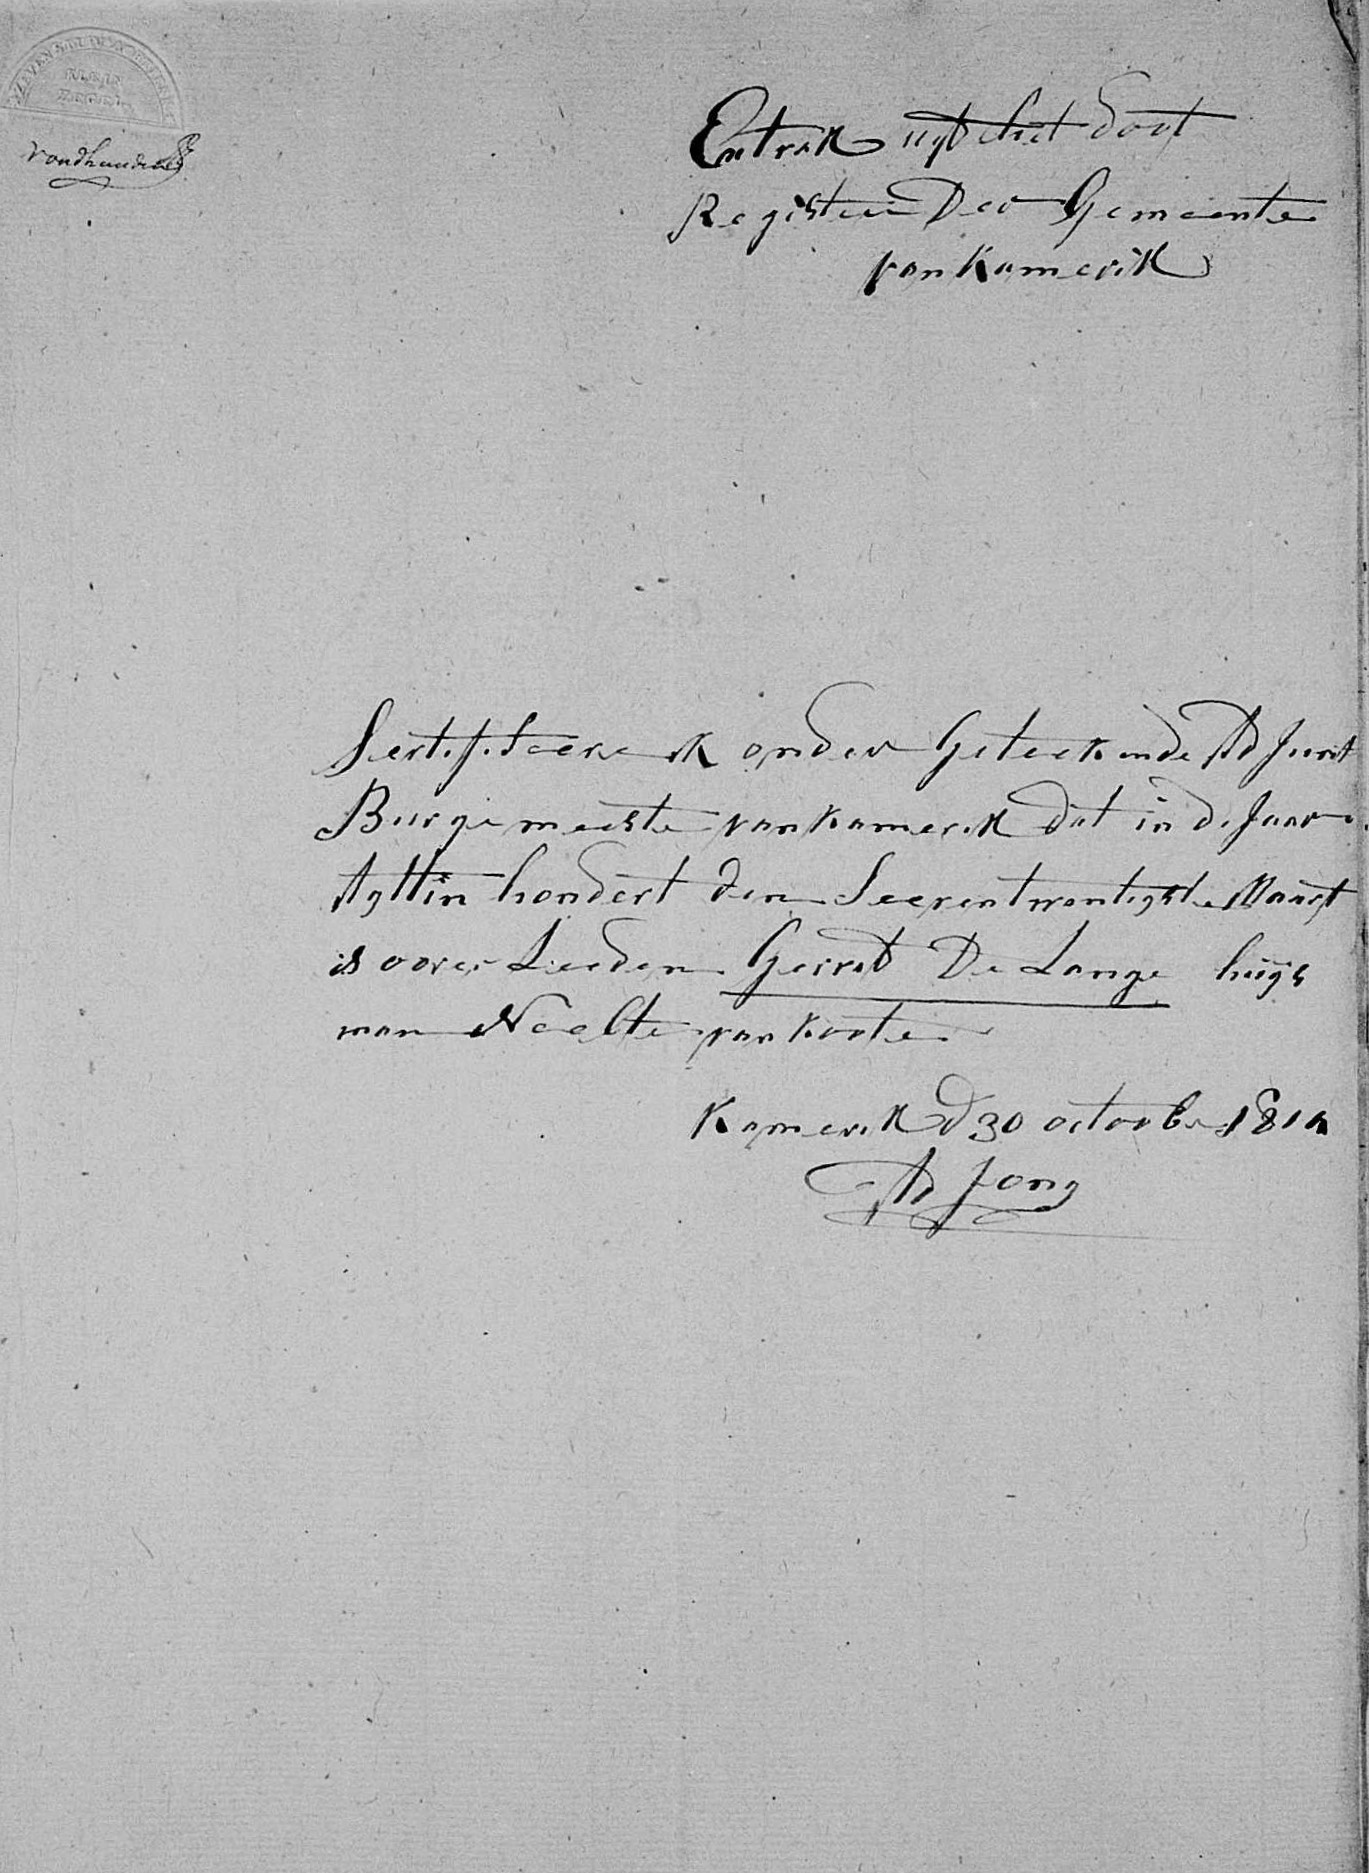 Extrak uyt het doot
Register Der Gemeente
van Kamerik
Sertifiseere ik onder Geteekende Ad Junt
Burge meeste van Kamerik dat in de Jaar
Agttin hondert den Seeventwentigste Maart
is overleeden Gerret De Lange huijs
man Neelte van Koote
Kamerik d 30 octoober
AD Jong